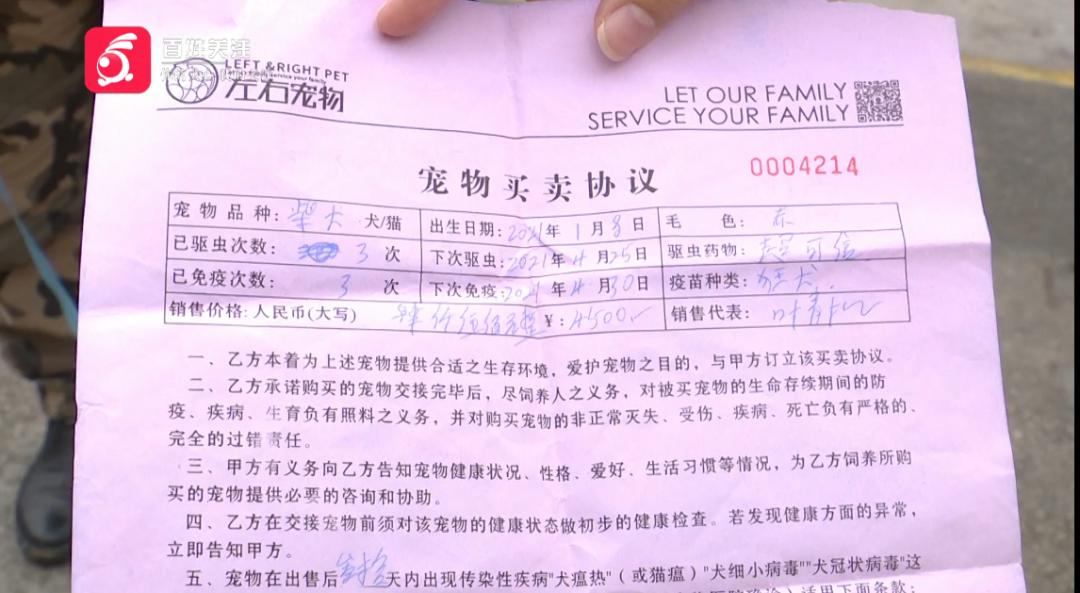 百姓关注
LEFT & RIGHT PET
左右宠物
LET OUR FAMILY
SERVICE YOUR FAMILY
宠物买卖协议
0004214
宠物品种: 柴犬 犬/猫 出生日期: 2021年1月8日 毛色: 赤
已驱虫次数: 3 次 下次驱虫: 2021年4月25日 驱虫药物: 超可信
已免疫次数: 3 次 下次免疫: 2021年4月30日 疫苗种类: 狂犬
销售价格: 人民币(大写) 肆仟伍佰元整 ¥: 4500 销售代表:
一、乙方本着为上述宠物提供合适之生存环境，爱护宠物之目的，与甲方订立该买卖协议。
二、乙方承诺购买的宠物交接完毕后，尽饲养人之义务，对被买宠物的生命存续期间的防
疫、疾病、生育负有照料之义务，并对购买宠物的非正常灭失、受伤、疾病、死亡负有严格的、
完全的过错责任。
三、甲方有义务向乙方告知宠物健康状况、性格、爱好、生活习惯等情况，为乙方饲养所购
买的宠物提供必要的咨询和协助。
四、乙方在交接宠物前须对该宠物的健康状态做初步的健康检查。若发现健康方面的异常，
立即告知甲方。
五、宠物在出售后 天内出现传染性疾病"犬瘟热"（或猫瘟）"犬细小病毒""犬冠状病毒"这
适用下面条款：